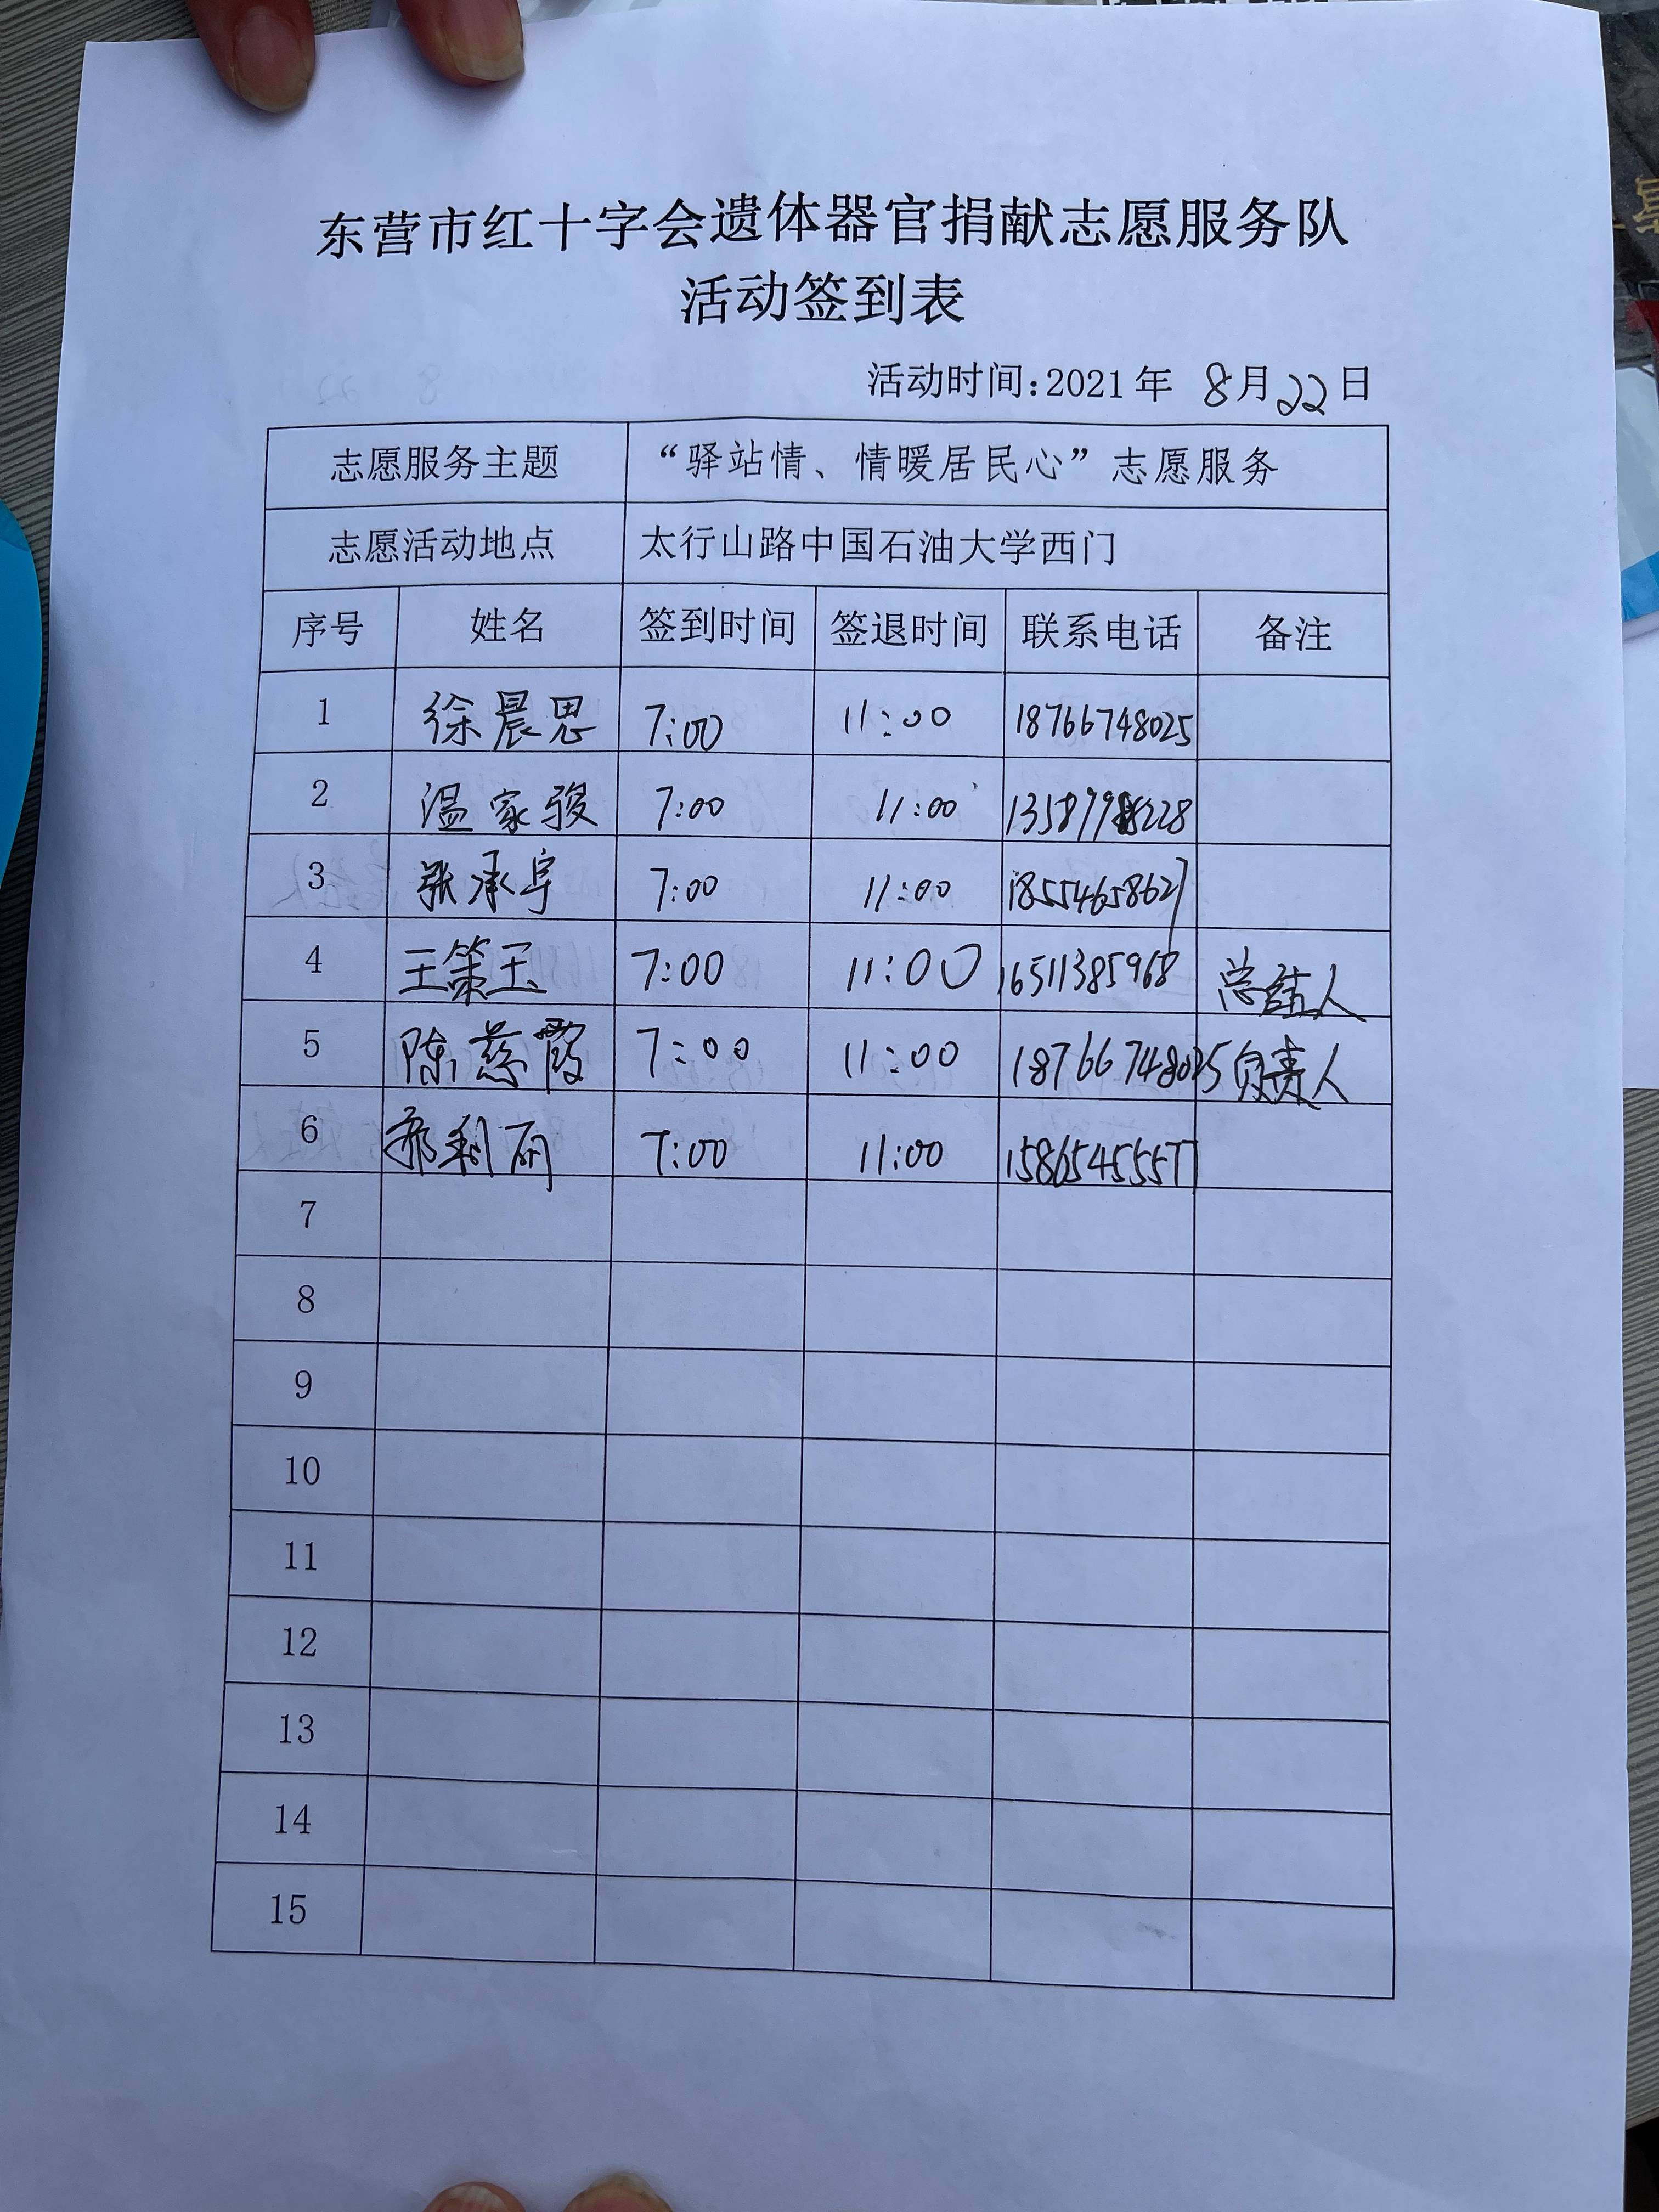 东营市红十字会遗体器官捐献志愿服务队
活动签到表
活动时间:2021年 8月22日
志愿服务主题 “驿站情、情暖居民心”志愿服务
志愿活动地点 太行山路中国石油大学西门
序号 姓名 签到时间 签退时间 联系电话 备注
1 徐晨思 7:00 11:00 18766748025
2 温家骏 7:00 11:00
3 张承宇 7:00 11:00 18554658627
4 王策玉 7:00 11:00 16511385968 总结人
5 陈慈霞 7:00 11:00 18766748025 负责人
6 利丽 7:00 11:00 15865455577
7
8
9
10
11
12
13
14
15